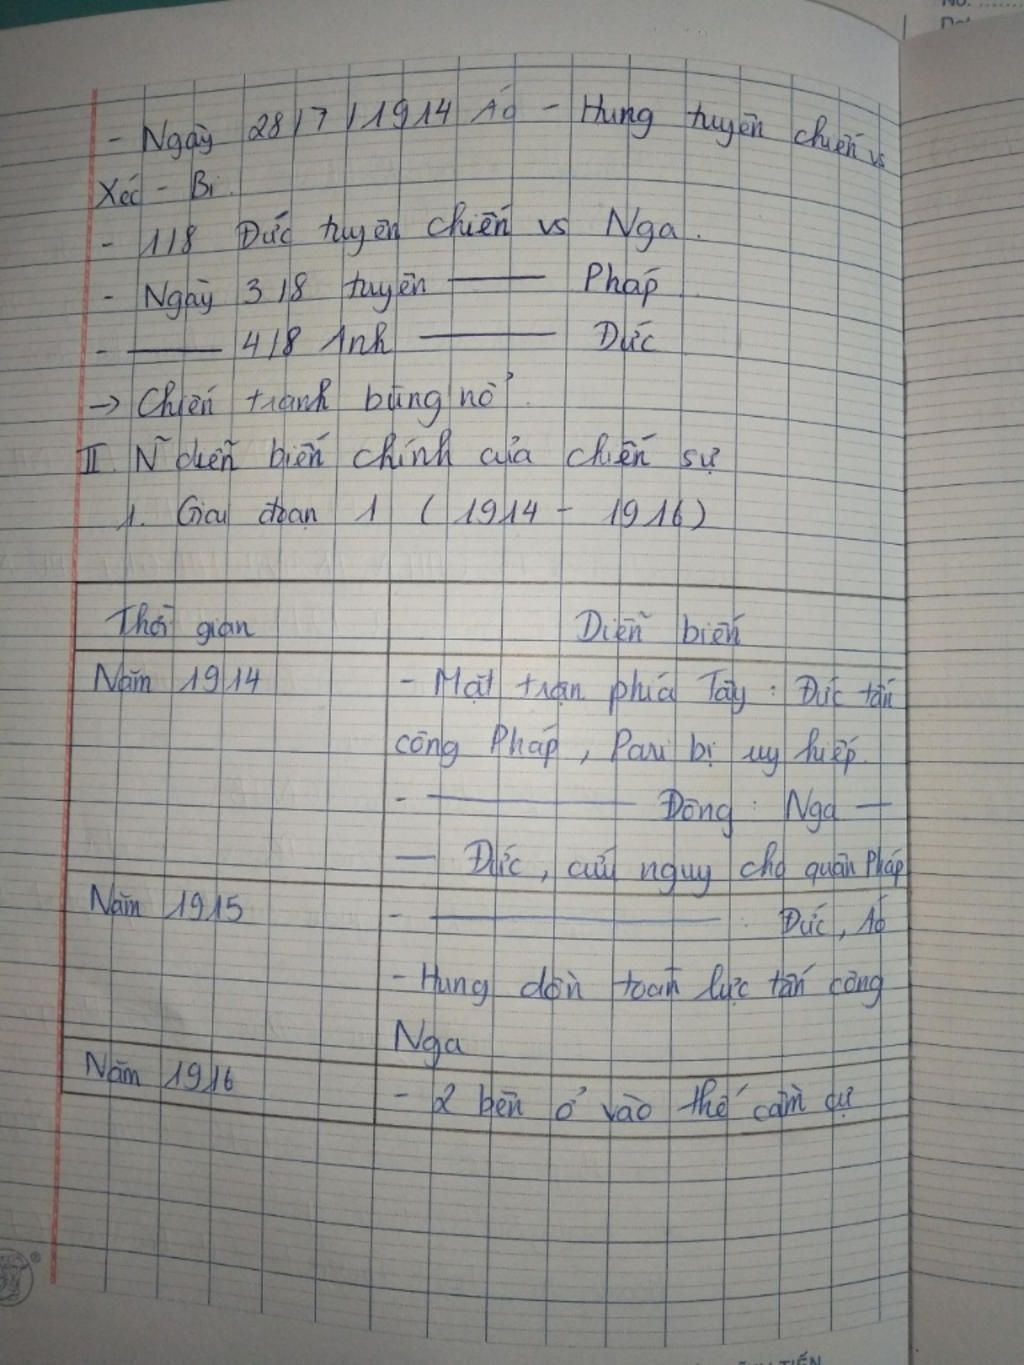 No.
- Ngày 28/7/1914 Áo - Hung tuyên chiến vs
Xéc - Bi.
- 1/8 Đức tuyên chiến vs Nga.
- Ngày 3/8 tuyên —— Pháp
- —— 4/8 Anh —— Đức
→ Chiến tranh bùng nổ.
II. N~ diễn biến chính của chiến sự
1. Giai đoạn 1 (1914 - 1916)
Thời gian Diễn biến
Năm 1914 - Mặt trận phía Tây: Đức tấn
công Pháp, Pari bị uy hiếp.
- —— Đông: Nga —
— Đức, cứu nguy cho quân Pháp
Năm 1915 - —— : Đức, Áo
- Hung dồn toàn lực tấn công
Nga
Năm 1916 - 2 bên ở vào thế cầm cự
TIẾN